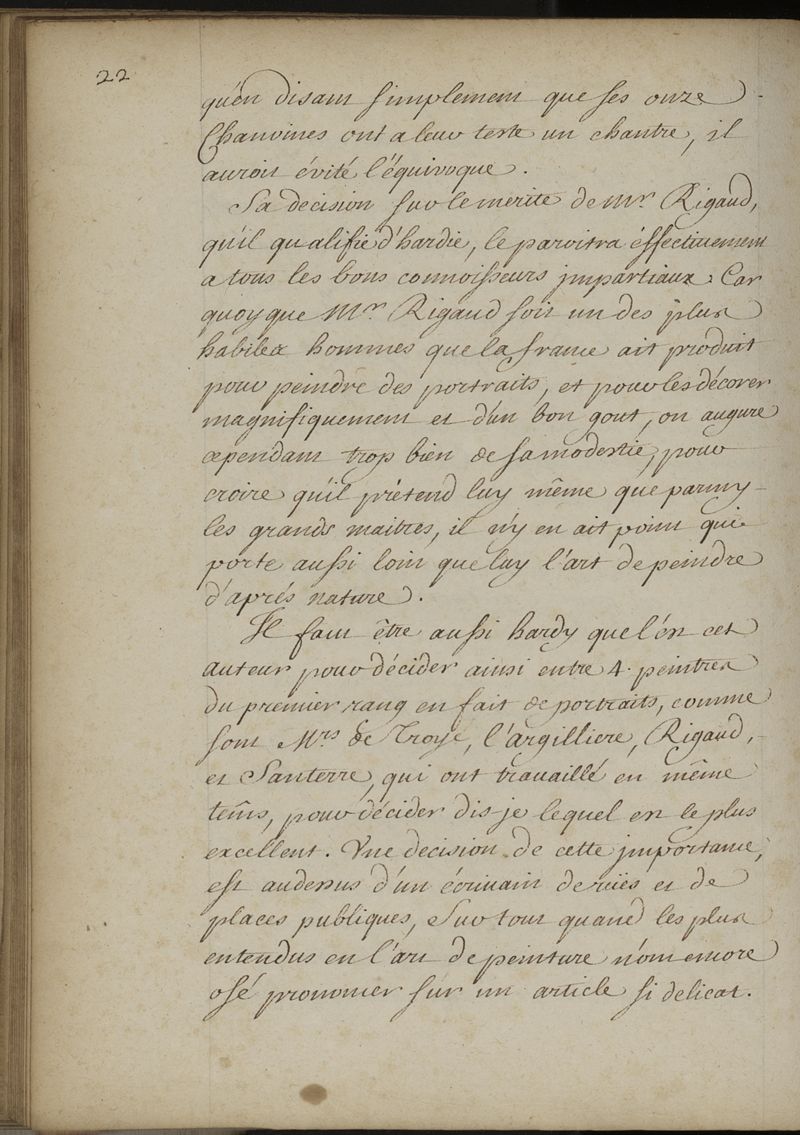 22
qu'en disant simplement que ses onze
Chanoines ont a leur teste un chantre, il
auroit évité l'équivoque.
Sa decision sur le merite de Mr. Rigaud,
qu'il qualifie d'hardie, le paroitra éffectivement
a tous les bons connoisseurs jmpartiaux. Car
quoyque Mr. Rigaud soit un des plus
habiles hommes que la france ait produit
pour peindre des portraits, et pour les décorer
magnifiquement et d'un bon gout, on augure
cependant trop bien de sa modestie, pour
croire qu'il prétend luy même que parmy
les grands maitres, il n'y en ait point qui
porte aussi loin que luy l'art de peindre
d'aprés nature.
Il faut être aussi hardy que l'est cet
auteur pour décider ainsi entre 4. peintres
du premier rang en fait de portraits, comme
sont Mrs. de Troye, l'argilliere, Rigaud,
et Santerre, qui ont travaillé en même
tems, pour décider dis je lequel est le plus
excellent. Une decision de cette jmportance,
est audessus d'un écrivain de rües et de
places publiques, Sur tout quand les plus
entendus en l'art de peinture n'ont encore
osé prononcer sur un article si delicat.